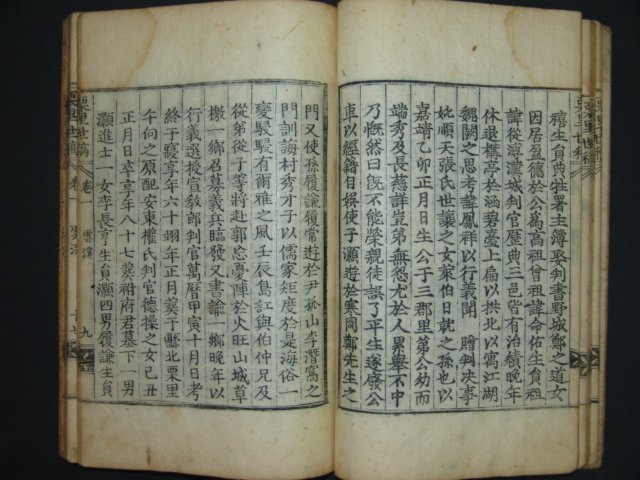 禧生員典牲署主簿娶判書野城鄭之道女
因居盈德於公爲高祖曾祖諱命佑生員祖
諱從漢漢城判官歷典三邑皆有治績晚年
休退構亭於涵碧臺上扁以拱北以寓江湖
魏闕之思考諱鳳祥以行義聞 贈判決事
妣順天張氏世讓之女萊伯日就之孫也以
嘉靖乙卯正月日生公于三郡里第公幼而
端秀及長慈詳豈弟無怨尤於人累擧不中
乃慨然曰旣不能榮親徒誤了平生遂廢公
車以經籍自娛使子灝遊於寒岡鄭先生之
門又使孫履謙履常遊於尹孤山李潛窩之
門訓誨村秀才子以儒家矩度於是海俗一
變駸駸有爾雅之風壬辰島訌與伯仲兄及
從弟從子等將赴郭忘憂陣於火旺山城草
檄一鄕召募義兵臨發又書諭一鄕晚年以
行義選授宣敎郎判官萬曆甲寅十月日考
終于寢享年六十翊年正月葬于縣北栗里
午向之原配安東權氏判官德操之女己丑
正月日卒享年八十七葬祔府君墓下一男
灝進士一女李長亨生員灝四男履謙生員
栗里世稿 卷一 雲溪 九
栗里世稿